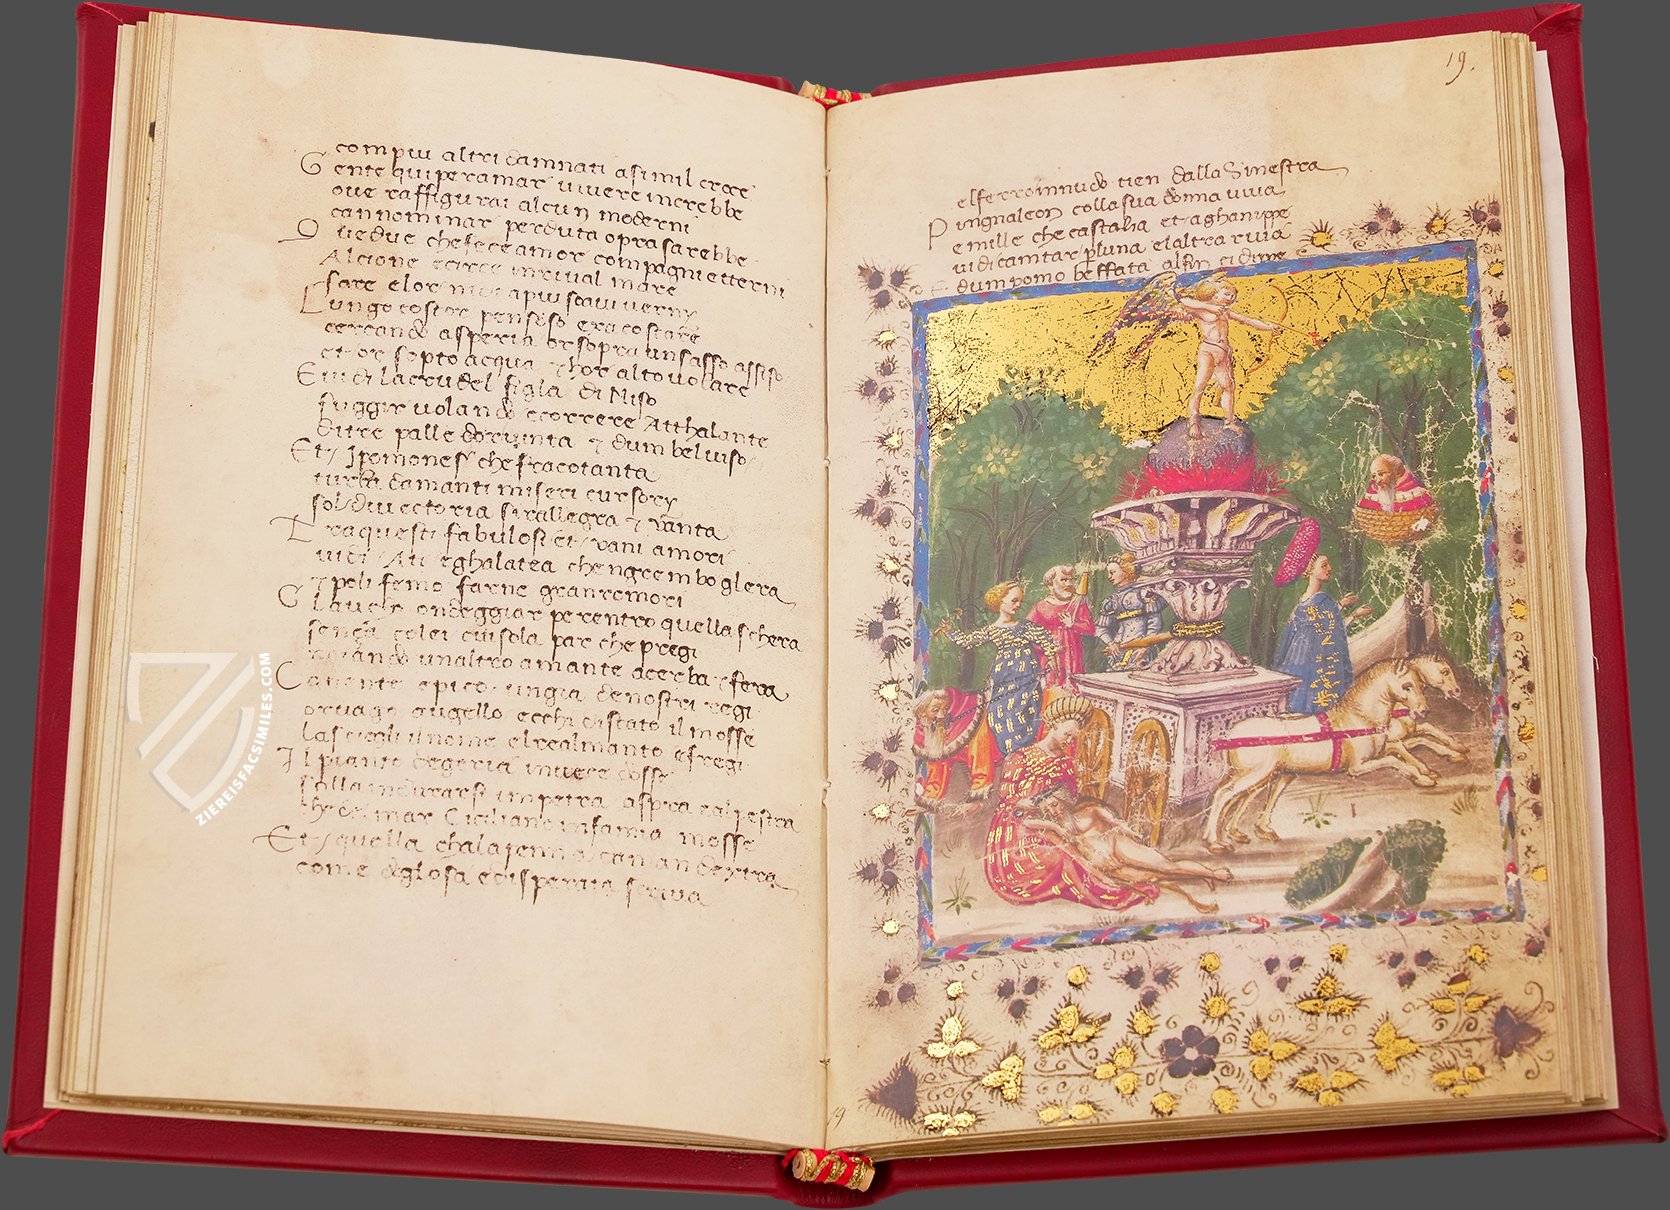 compiu altri damnati asimil croce
Gente qui per amar vivere increbbe
ove raffigurai alcun moderni
cannominar perduta opra sarebbe
Que due che fece amor compagni etterni
Alcione ecirce inrival mare
fare elor nidi apiu soavi verni
Lungo costor pensoso era costare
cercando asperia or sopra un sasso assiso
et or sopto acqua & hor alto volare
E vidi la crudel figla di Niso
fuggir volando ecorrere Atthalante
di tre palle doro vinta & dum bel viso
Et ypomones che fra cotanta
turba damanti miseri cursory
sol di vectoria si rallegra & vanta
Fra questi fabulosi et vani amori
vidi Ati eghalatea che ngrembo glera
& polifemo farne gran remori
Glauco ondeggiar per entro quella schera
senza colei cui sola par che pregi
un altro amante acerba & fera
e pico un gia de nostri regi
or vago augello e chi di stato il mosse
lascio gli il nome el real manto e fregi
Il pianto degeria invece dosse
Scilla indurarsi impetra aspra
che del mar Ciciliano infamia mosse
Et quella chalapenna
come dogliosa e disperata scriva
19.
el ferro innudo tien dalla Sinestra
Pingnaleon colla sua donna viva
e mille che castalia et aghanippe
vidi cantar per luna e laltra riva
E dum pomo beffata al fin cidippe
19
ZIEREISFACSIMILES.COM